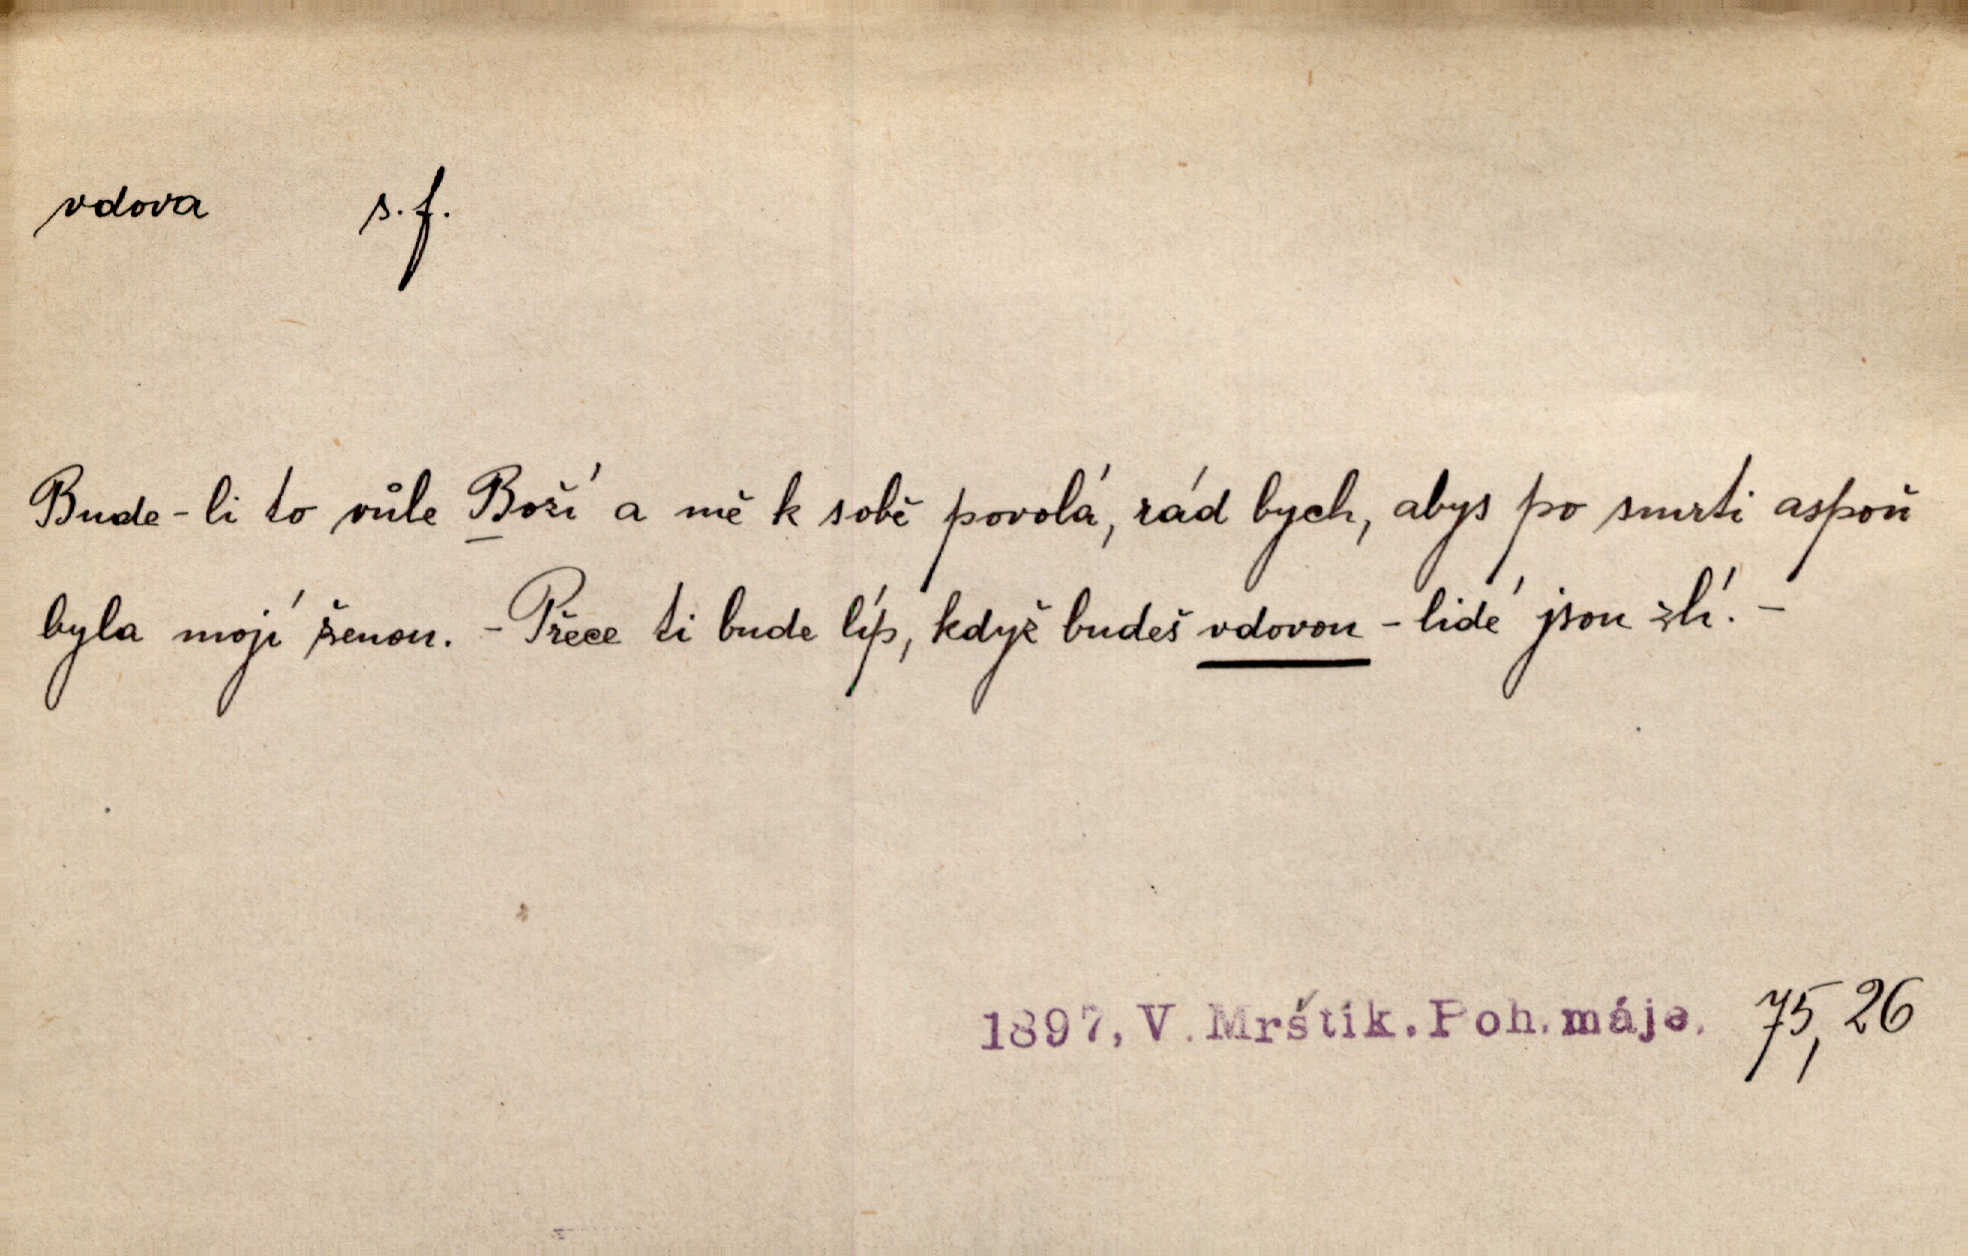 vdova s. f.
Bude-li to vůle Boží a mě k sobě povolá, rád bych, abys po smrti aspoň
byla mojí ženou. - Přece ti bude líp, když budeš vdovou - lidé jsou zlí. -
1897, V. Mrštík. Poh. máje. 75, 26